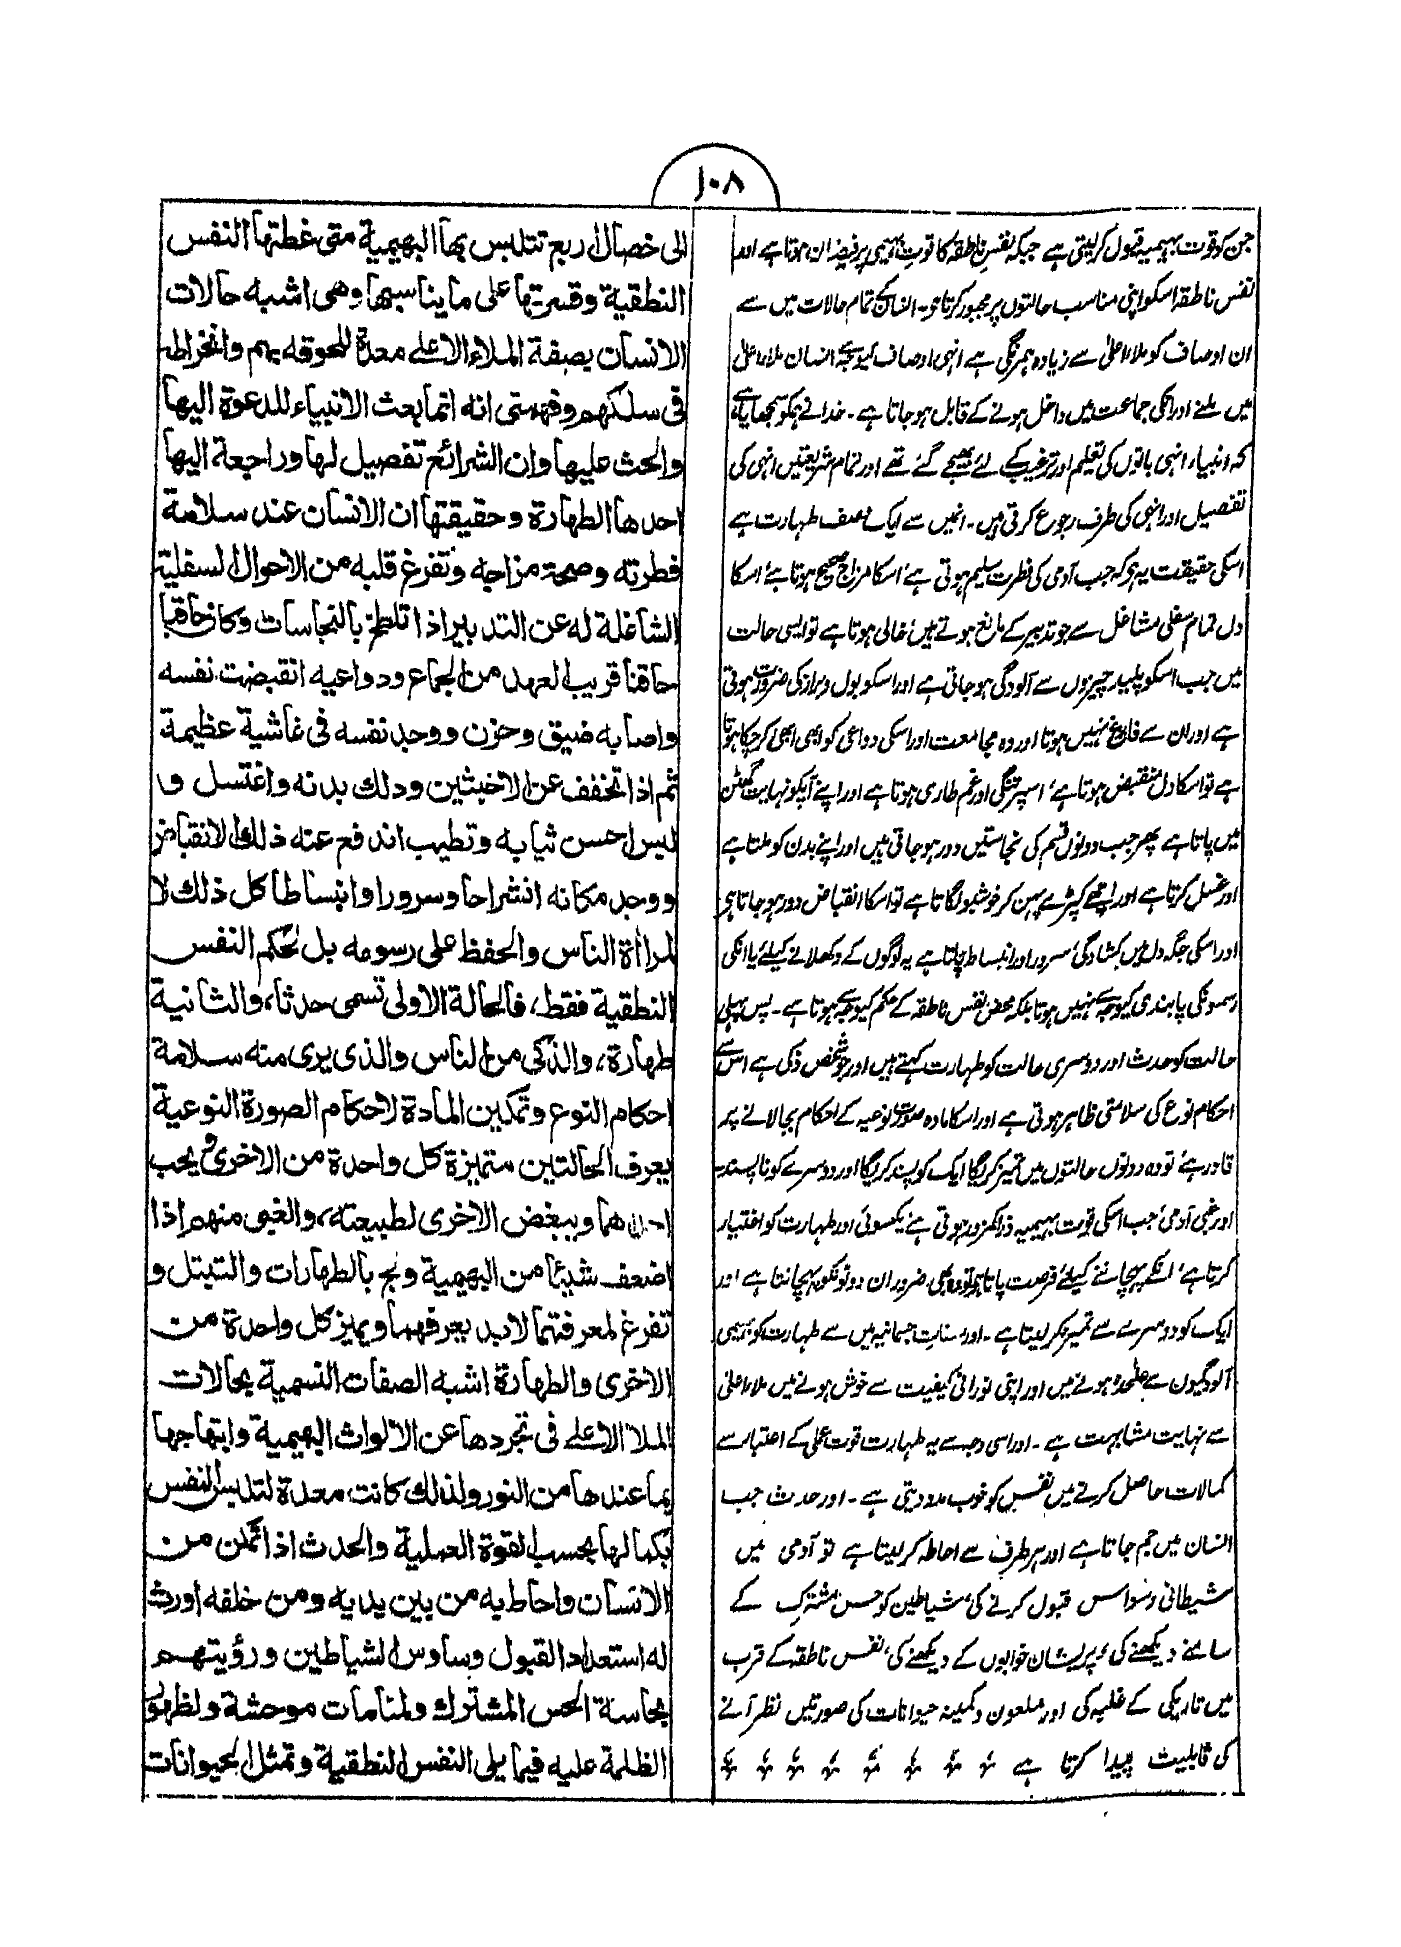 ۱۰۸
جن کو قوت بہیمیہ قبول کرلیتی ہے جبکہ نفس ناطقہ کا قوت بہیمی پر فیضان ہوتا ہے اور
نفس ناطقہ اسکو اپنی مناسب حالتوں پر مجبور کرتا ہو۔ انسان کی تمام حالات میں سے
ان اوصاف کو ملاء اعلیٰ سے زیادہ ہمرنگی ہے انہی اوصاف کیوجہ سے انسان ملاء اعلیٰ
میں ملنے اور انکی جماعت میں داخل ہونے کے قابل ہوجاتا ہے۔ خدا نے ہمکو سمجھایا ہے
کہ انبیاء انہی باتوں کی تعلیم اور ترغیب کے لئے بھیجے گئے تھے اور تمام شریعتیں انہی کی
تفصیل اور انہی کی طرف رجوع کرتی ہیں۔ انمیں سے ایک وصف طہارت ہے
اسکی حقیقت یہ ہو کہ جب آدمی کی فطرت سلیم ہوتی ہے، اسکا مزاج صحیح ہوتا ہے، اسکا
دل تمام سفلی مشاغل سے جو تدبیر کے مانع ہوتے ہیں، خالی ہوتا ہے تو ایسی حالت
میں جب اسکو پلید چیزوں سے آلودگی ہوجاتی ہے اور اسکو بول و براز کی ضرورت ہوتی
ہے اور ان سے فارغ نہیں ہوتا اور وہ مجامعت اور اسکی دواعی کو ابھی ابھی کرچکا ہوتا
ہے تو اسکا دل منقبض ہوتا ہے، اسپر تنگی اور غم طاری ہوتا ہے اور اپنے آپکو نہایت گھٹن
میں پاتا ہے پھر جب دونوں قسم کی نجاستیں دور ہوجاتی ہیں اور اپنے بدن کو ملتا ہے
اور غسل کرتا ہے اور اچھے کپڑے پہن کر خوشبو لگاتا ہے تو اسکا انقباض دور ہوجاتا ہی
اور اسکی جگہ دل میں کشادگی، سرور اور انبساط پاتا ہے یہ لوگوں کے دکھلانے کیلئے یا انکی
رسموں کی پابندی کیوجہ سے نہیں ہوتا بلکہ محض نفس ناطقہ کے حکم کیوجہ سے ہوتا ہے۔ پس پہلی
حالت کو حدث اور دوسری حالت کو طہارت کہتے ہیں اور جو شخص ذکی ہے اس سے
احکام نوع کی سلامتی ظاہر ہوتی ہے اور اسکا مادہ صورت نوعیہ کے احکام بجا لانے پر
قادر ہے، تو وہ دونوں حالتوں میں تمیز کرلیگا ایک کو پسند کریگا اور دوسرے کو ناپسند۔
اور غبی آدمی جب اسکی قوت بہیمیہ ذرا کمزور ہوتی ہے یکسوئی اور طہارت کو اختیار
کرتا ہے، انکے پہچاننے کیلئے فرصت پاتا ہو تو وہ بھی ضرور ان دونوں کو پہچانتا ہے اور
ایک کو دوسرے سے تمیز کرلیتا ہے۔ اور صفات جسمانیہ میں سے طہارت کو بہیمی
آلودگیوں سے علیحدہ ہونے میں اور اپنی نورانی کیفیت سے خوش ہونے میں ملاء اعلیٰ
سے نہایت مشابہت ہے۔ اور اسی وجہ سے یہ طہارت قوت عملی کے اعتبار سے
کمالات حاصل کرنے میں نفس کو خوب مدد دیتی ہے۔ اور حدث جب
انسان میں جم جاتا ہے اور ہر طرف سے احاطہ کرلیتا ہے تو آدمی میں
شیطانی وسواس قبول کرنے کی، شیاطین کو حس مشترک کے
سامنے دیکھنے کی، پریشان خوابوں کے دیکھنے کی، نفس ناطقہ کے قرب
میں تاریکی کے غلبہ کی اور ملعون و کمینہ حیوانات کی صورتیں نظر آنے
کی قابلیت پیدا کرتا ہے
الی خصال اربع تتلبس بها البهیمیة متی غطتها النفس
النطقیة وقسرتها علی ما یناسبها وهی اشبه حالات
الانسان بصفة الملاء الاعلے معدة للحوقه بهم وانخراطه
فی سلکهم وفهمتی انه انما بعث الانبیاء للدعوة الیها
والحث علیها وان الشرائع تفصیل لها وراجعة الیها
احدها الطهارة وحقیقتها ان الانسان عند سلامة
فطرته وصحة مزاجه وتفرغ قلبه من الاحوال السفلیة
الشاغلة له عن التدبیر اذا تلطخ بالنجاسات وکان حاقبا
حاقنا قریب العهد من الجماع ودواعیه انقبضت نفسه
واصابه ضیق وحزن ووجد نفسه فی غاشیة عظیمة
ثم اذا تخفف عن الاخبثین ودلك بدنه واغتسل و
لبس احسن ثیابه وتطیب اندفع عنه ذلك الانقباض
ووجد مکانه انشراحا وسرورا وانبساطا کل ذلك لا
لمراأة الناس والحفظ علی رسومه بل لحکم النفس
النطقیة فقط، فالحالة الاولی تسمی حدثا، والثانیة
طهارة، والذکی من الناس والذی یری منه سلامة
احکام النوع وتمکین المادة لاحکام الصورة النوعیة
یعرف الحالتین متمیزة کل واحدة من الاخری ویحب
احداهما ویبغض الاخری لطبیعته، والغبی منهم اذا
اضعف شیئا من البهیمیة ولج بالطهارات والتبتل و
تفرغ لمعرفتهما لابد یعرفهما ویمیز کل واحدة من
الاخری والطهارة اشبه الصفات النسمیة بحالات
الملأ الاعلے فی تجردها عن الالواث البهیمیة وابتهاجها
بما عندها من النور ولذلك کانت معدة لتلبس النفس
بکمالها بحسب القوة العملیة والحدث اذا تمکن من
الانسان واحاط به من بین یدیه ومن خلفه اورث
له استعدادا لقبول وساوس الشیاطین ورؤیتهم
بحاسة الحس المشترك ولمنامات موحشة ولظهور
الظلمة علیه فیما یلی النفس النطقیة وتمثل الحیوانات